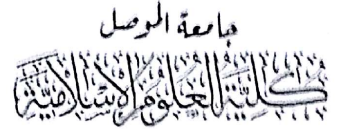 جامعة الموصل
كُلِّيَّةُ الْعُلُومِ الْإِسْلَامِيَّةِ